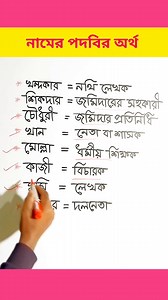 নামের পদবির অর্থ
খন্দকার = নথি লেখক
শিকদার = জমিদারের সহকারী
চৌধুরী = জমিদার প্রতিনিধি
খান = নেতা বা শাসক
মোল্লা = ধর্মীয় শিক্ষক
কাজী = বিচারক
= লেখক
= দলনেতা